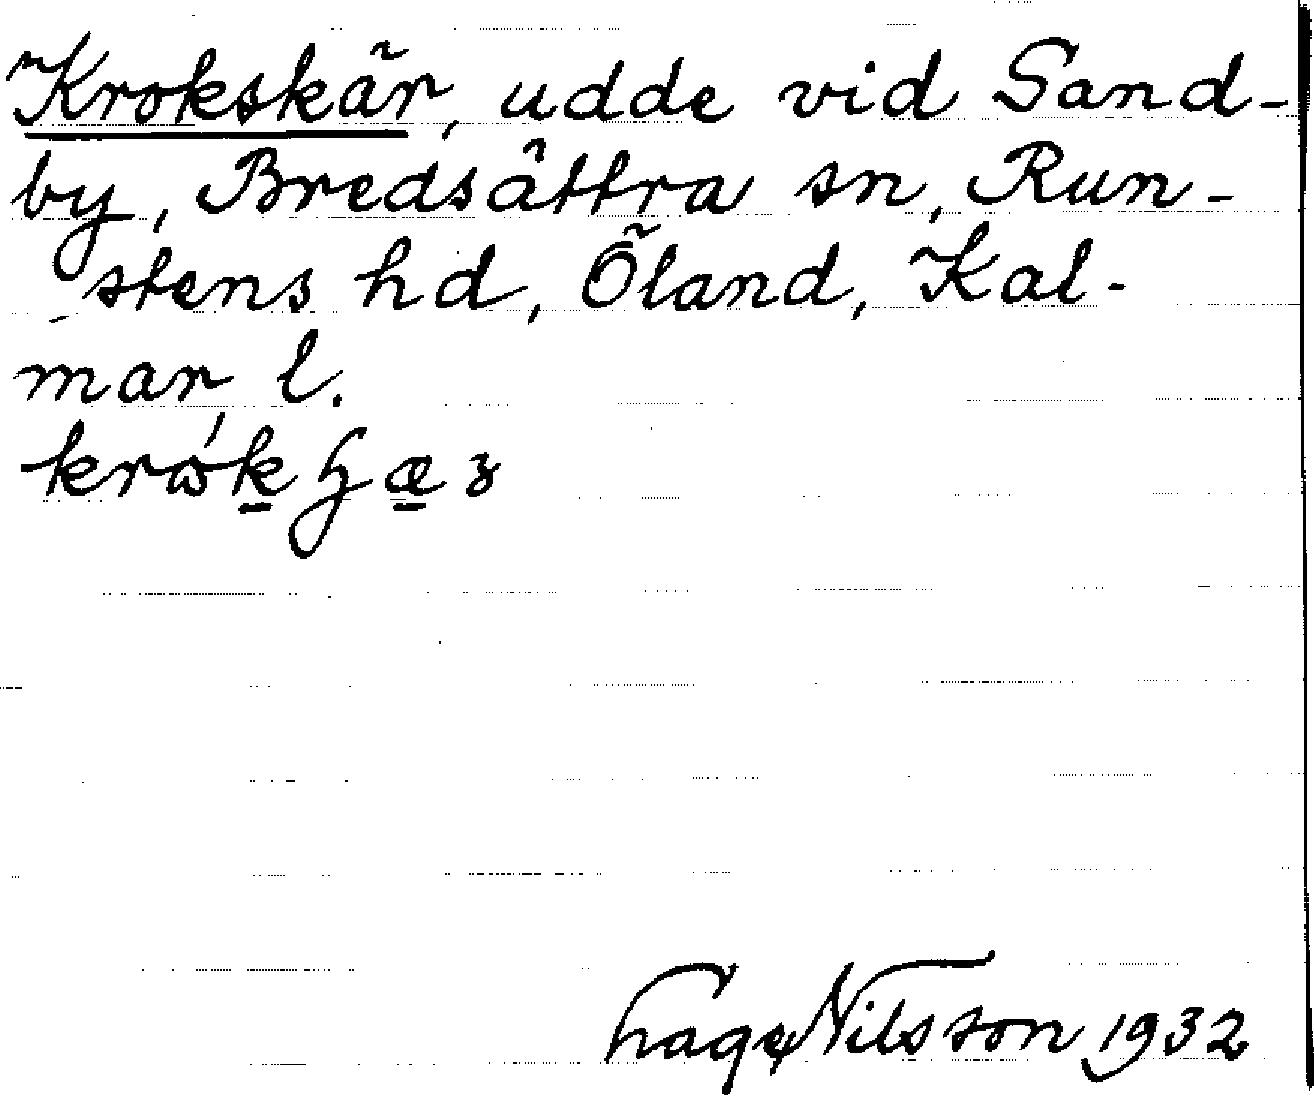 Krokskär, udde vid Sand-
by, Bredsättra sn, Run-
stens hd, Öland, Kal-
mar l.
Nilsson 1932